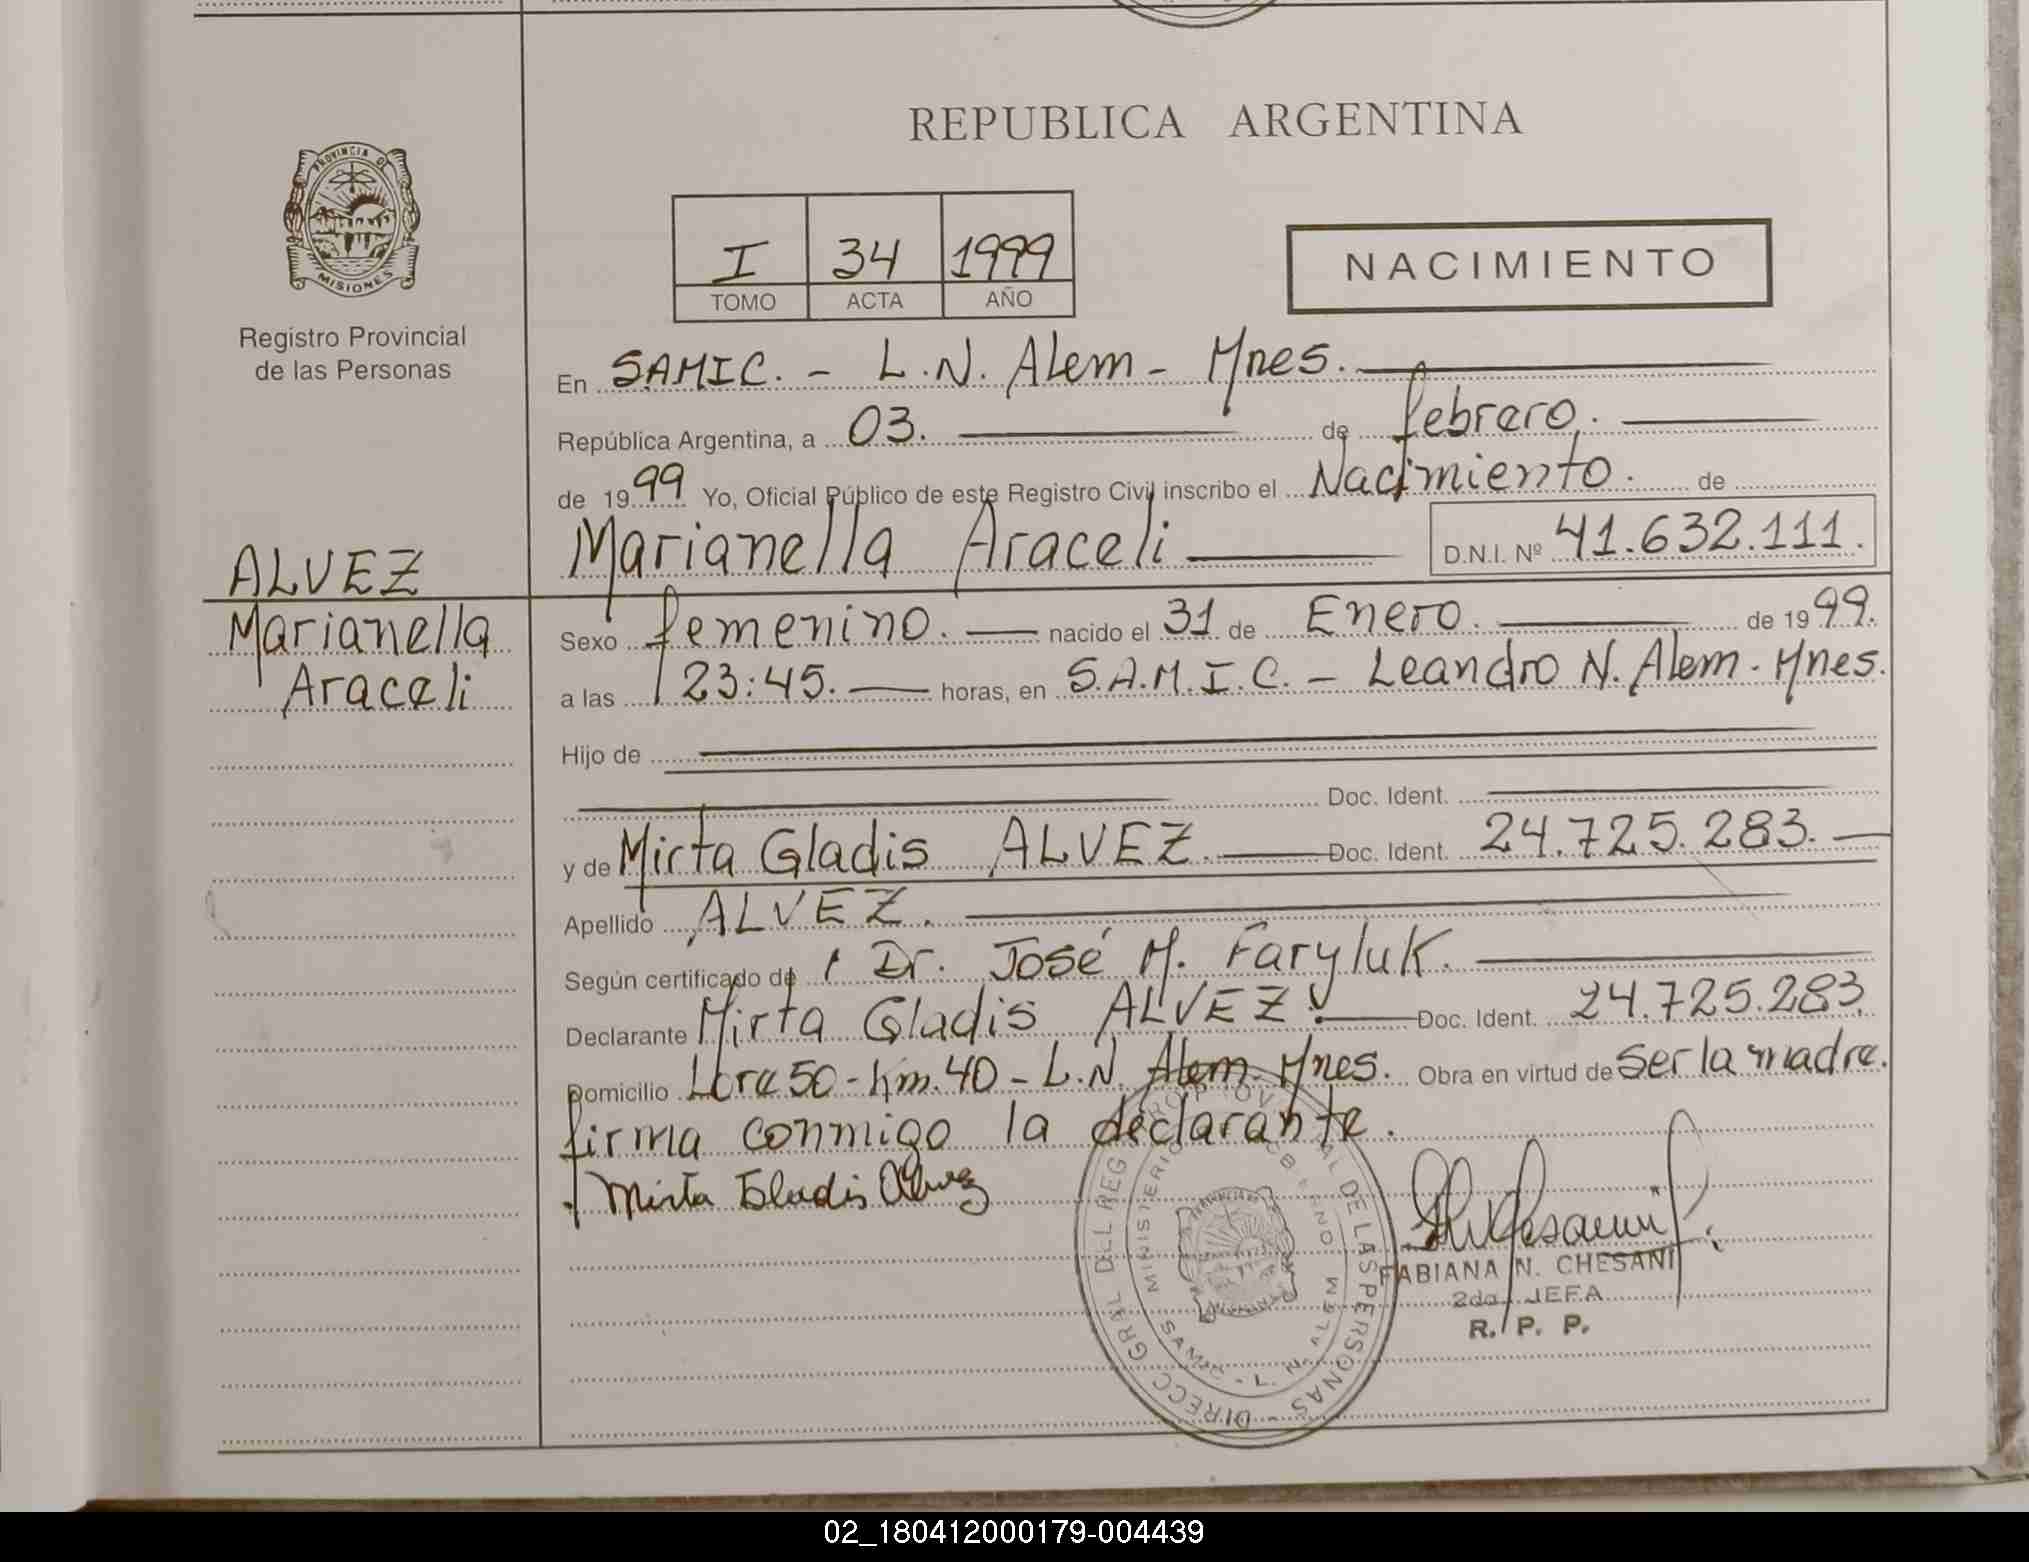 REPUBLICA ARGENTINA
PROVINCIA DE
MISIONES
Registro Provincial
de las Personas
I 34 1999
TOMO ACTA AÑO
NACIMIENTO
En SAMIC. - L.N. Alem - Mnes.
República Argentina, a 03. de febrero.
de 1999 Yo, Oficial Público de este Registro Civil inscribo el Nacimiento. de
Marianella Araceli D.N.I. Nº 41.632.111.
ALVEZ
Marianella
Araceli
Sexo femenino. nacido el 31 de Enero. de 1999.
a las 23:45. horas, en S.A.M.I.C. - Leandro N. Alem - Mnes.
Hijo de
Doc. Ident.
y de Mirta Gladis ALVEZ. Doc. Ident. 24.725.283.
Apellido ALVEZ.
Según certificado de Dr. José M. Faryluk.
Declarante Mirta Gladis ALVEZ. Doc. Ident. 24.725.283.
Domicilio Lote 50 - km. 40 - L.N. Alem - Mnes. Obra en virtud de ser la madre.
firma conmigo la declarante.
Mirta Gladis Alvez
DIRECC GRAL DEL REG PROV DE LAS PERSONAS
MINISTERIO GOBIERNO
SAMIC - L. N. ALEM
FABIANA N. CHESANI
2da. JEFA
R. P. P.
02_180412000179-004439